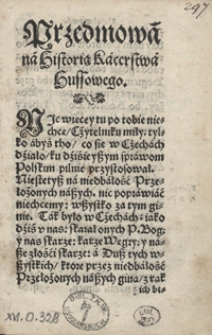 297
Przedmowá
ná Historia Kácerstwá
Hussowego.
Nie wiecey tu po tobie nie-
chce/ Czytelniku miły: tyl-
ko ábyś tho/ co sie w Czechách
działo/ ku dzisieyszym spráwom
Polskim pilnie przystosował.
Niestetyż ná niedbáłość Prze-
łożonych nászych. nic popráwiáć
niechcemy: wszystko zá tym gi-
nie. Ták było w Czechách: iáko
dziś v nas: skárał onych P. Bog:
y nas skarze: karze Węgry: y ná-
sze złości skarze: á Dusz tych w-
szystkich/ ktore przez niedbáłość
Przełożonych nászych giną/ z rąk
ich bi-
XVI.O.328